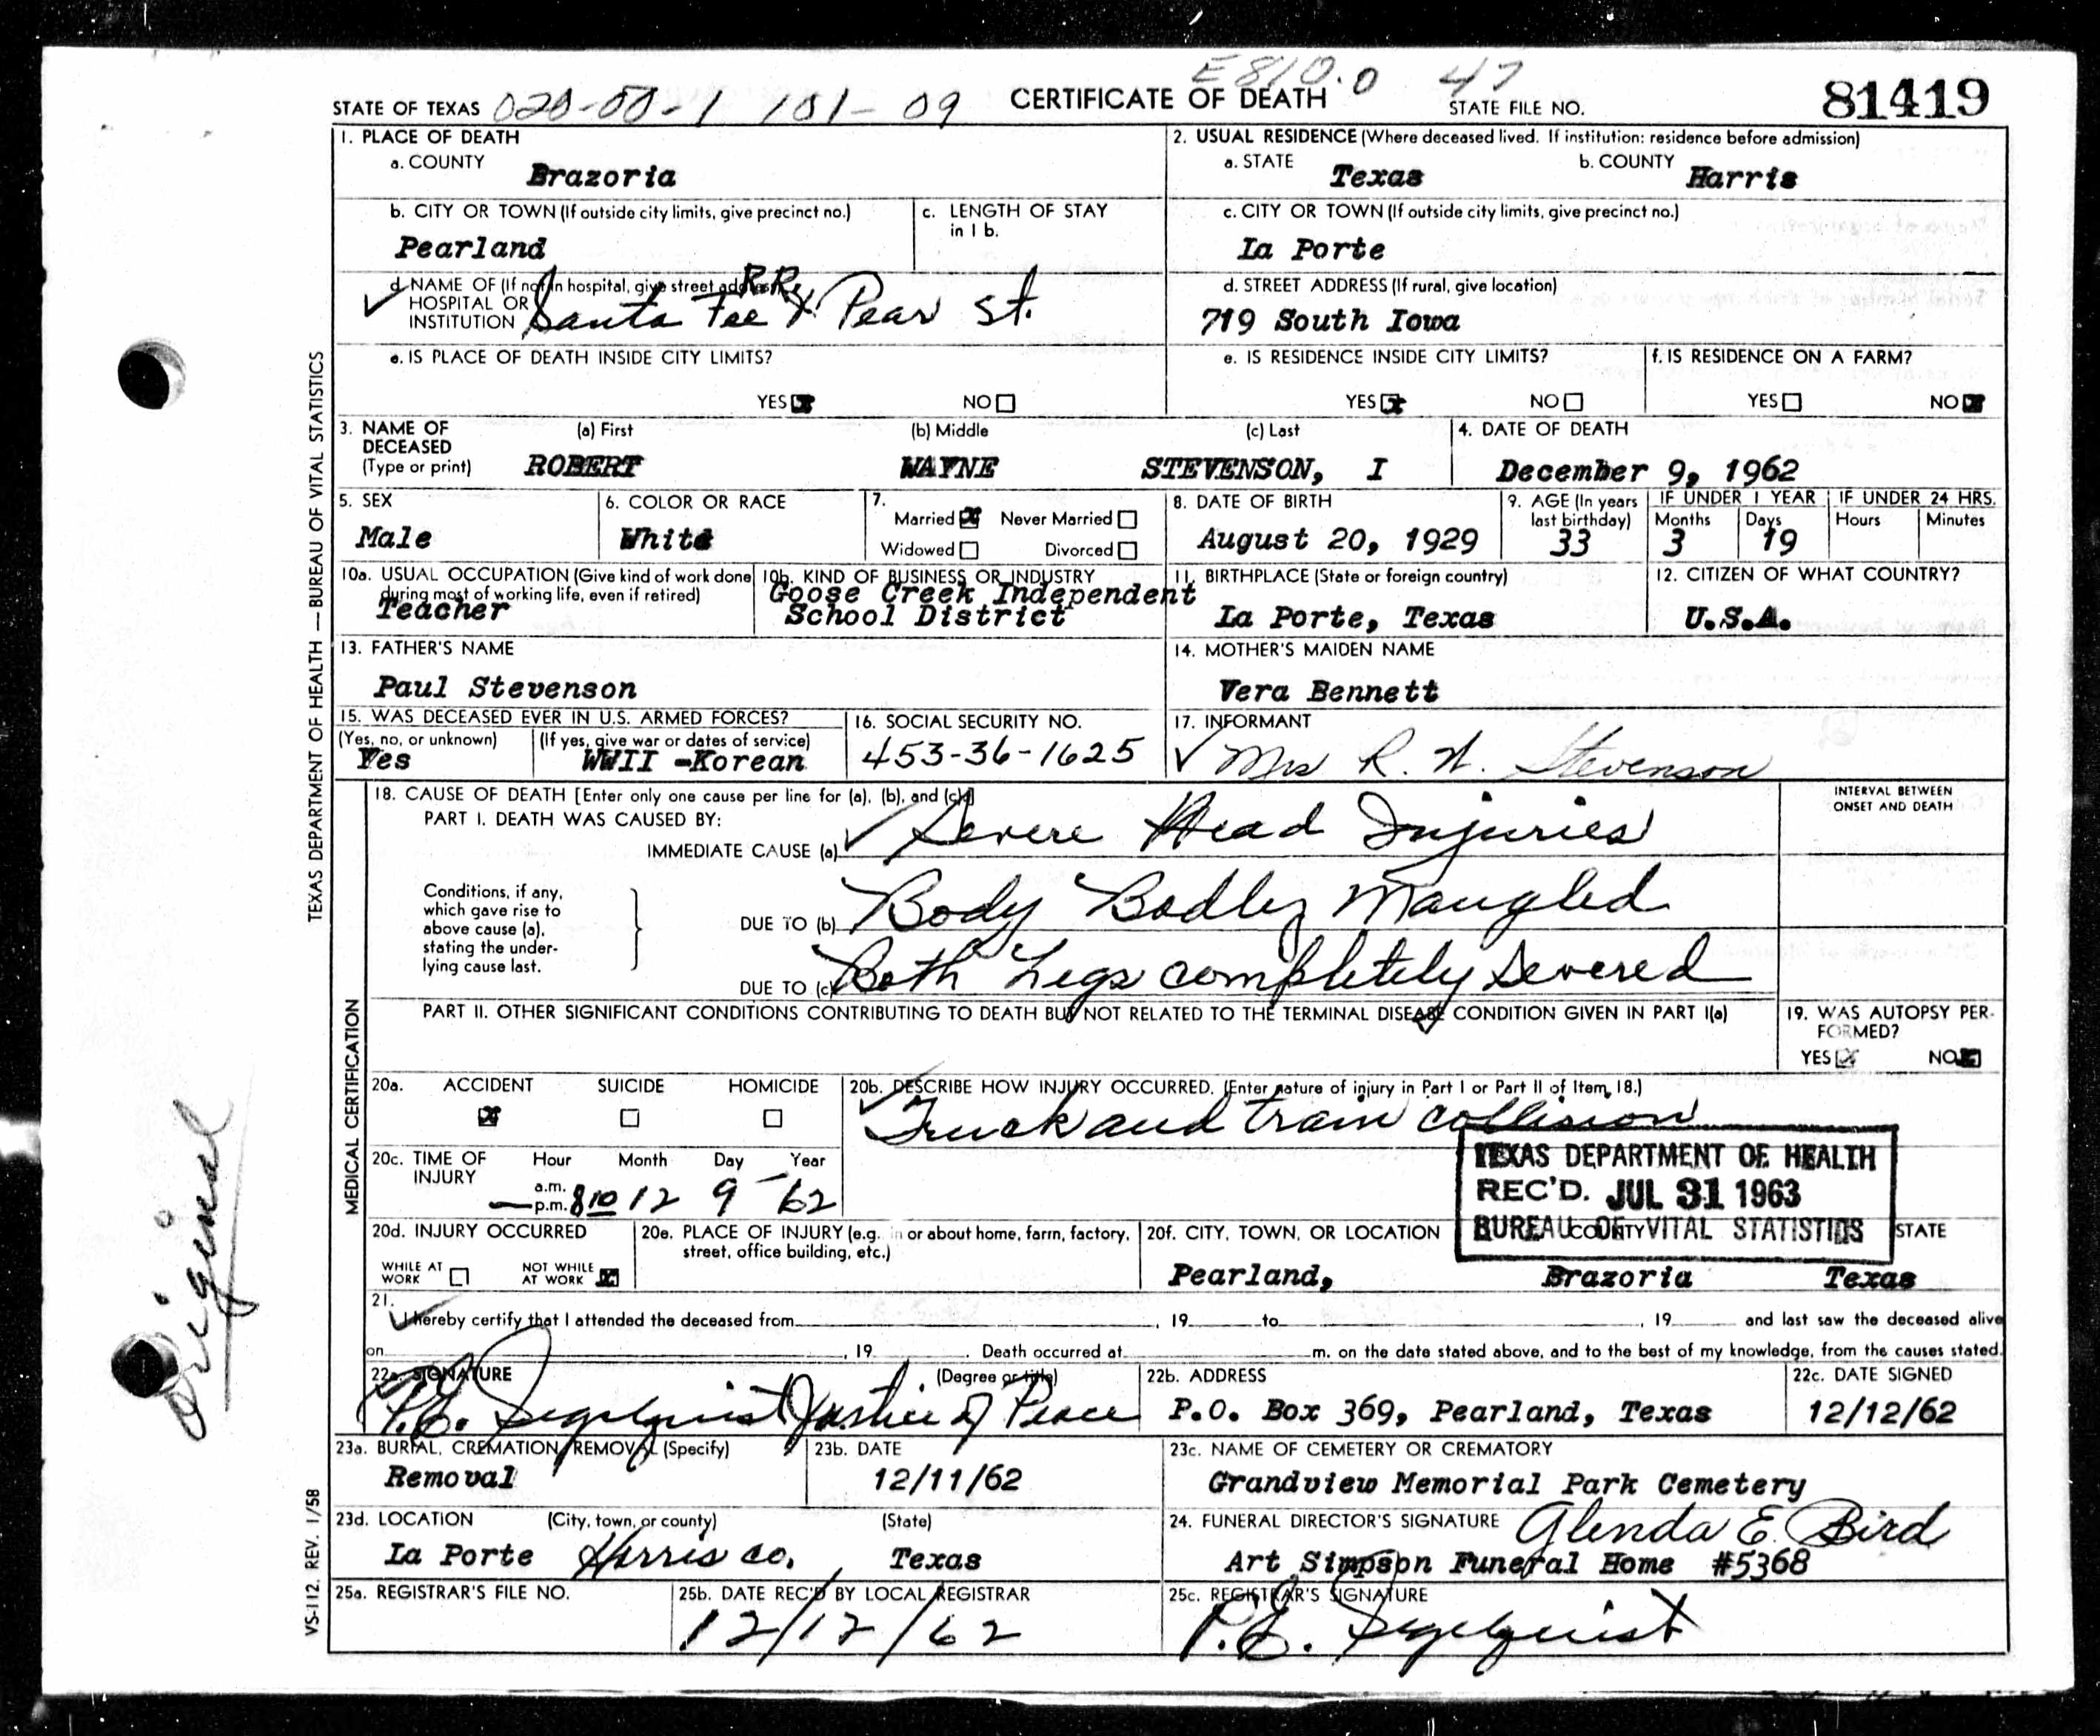 E810.0 47
STATE OF TEXAS 020-50-1 101-09 CERTIFICATE OF DEATH STATE FILE NO. 81419
1. PLACE OF DEATH
a. COUNTY Brazoria
2. USUAL RESIDENCE (Where deceased lived. If institution: residence before admission)
a. STATE Texas b. COUNTY Harris
b. CITY OR TOWN (If outside city limits, give precinct no.)
Pearland
c. LENGTH OF STAY
in 1 b.
c. CITY OR TOWN (If outside city limits, give precinct no.)
La Porte
d. NAME OF (If not in hospital, give street address)
HOSPITAL OR
INSTITUTION Santa Fee RR & Pear St.
d. STREET ADDRESS (If rural, give location)
719 South Iowa
e. IS PLACE OF DEATH INSIDE CITY LIMITS?
YES NO
e. IS RESIDENCE INSIDE CITY LIMITS?
YES NO
f. IS RESIDENCE ON A FARM?
YES NO
3. NAME OF
DECEASED
(Type or print)
(a) First (b) Middle (c) Last
ROBERT WAYNE STEVENSON, I
4. DATE OF DEATH
December 9, 1962
5. SEX
Male
6. COLOR OR RACE
White
7.
Married Never Married
Widowed Divorced
8. DATE OF BIRTH
August 20, 1929
9. AGE (In years
last birthday)
33
IF UNDER 1 YEAR IF UNDER 24 HRS.
Months Days Hours Minutes
3 19
10a. USUAL OCCUPATION (Give kind of work done
during most of working life, even if retired)
Teacher
10b. KIND OF BUSINESS OR INDUSTRY
Goose Creek Independent
School District
11. BIRTHPLACE (State or foreign country)
La Porte, Texas
12. CITIZEN OF WHAT COUNTRY?
U.S.A.
13. FATHER'S NAME
Paul Stevenson
14. MOTHER'S MAIDEN NAME
Vera Bennett
15. WAS DECEASED EVER IN U.S. ARMED FORCES?
(Yes, no, or unknown) (If yes, give war or dates of service)
Yes WWII -Korean
16. SOCIAL SECURITY NO.
453-36-1625
17. INFORMANT
Mrs R. W. Stevenson
18. CAUSE OF DEATH [Enter only one cause per line for (a), (b), and (c).]
PART I. DEATH WAS CAUSED BY:
IMMEDIATE CAUSE (a) Severe Head Injuries
INTERVAL BETWEEN
ONSET AND DEATH
Conditions, if any,
which gave rise to
above cause (a),
stating the under-
lying cause last.
DUE TO (b) Body Badley Mangled
DUE TO (c) Both Legs completely Severed
PART II. OTHER SIGNIFICANT CONDITIONS CONTRIBUTING TO DEATH BUT NOT RELATED TO THE TERMINAL DISEASE CONDITION GIVEN IN PART I(a)
19. WAS AUTOPSY PER-
FORMED?
YES NO
20a. ACCIDENT SUICIDE HOMICIDE
20b. DESCRIBE HOW INJURY OCCURRED. (Enter nature of injury in Part I or Part II of Item 18.)
Truck and train collision
20c. TIME OF
INJURY
Hour Month Day Year
a.m.
p.m. 8 10 12 9 62
TEXAS DEPARTMENT OF HEALTH
REC'D. JUL 31 1963
BUREAU OF VITAL STATISTICS
20d. INJURY OCCURRED
WHILE AT
WORK
NOT WHILE
AT WORK
20e. PLACE OF INJURY (e.g. in or about home, farm, factory,
street, office building, etc.)
20f. CITY, TOWN, OR LOCATION COUNTY STATE
Pearland, Brazoria Texas
21.
I hereby certify that I attended the deceased from , 19 to , 19 and last saw the deceased alive
on , 19 . Death occurred at m. on the date stated above, and to the best of my knowledge, from the causes stated.
22a. SIGNATURE (Degree or title)
P.E. Segelquist Justice of Peace
22b. ADDRESS
P.O. Box 369, Pearland, Texas
22c. DATE SIGNED
12/12/62
23a. BURIAL, CREMATION, REMOVAL (Specify)
Removal
23b. DATE
12/11/62
23c. NAME OF CEMETERY OR CREMATORY
Grandview Memorial Park Cemetery
23d. LOCATION (City, town, or county) (State)
La Porte Harris Co. Texas
24. FUNERAL DIRECTOR'S SIGNATURE Glenda E. Bird
Art Simpson Funeral Home #5368
25a. REGISTRAR'S FILE NO.
25b. DATE REC'D BY LOCAL REGISTRAR
12/12/62
25c. REGISTRAR'S SIGNATURE
P.E. Segelquist
TEXAS DEPARTMENT OF HEALTH — BUREAU OF VITAL STATISTICS
MEDICAL CERTIFICATION
VS-112. REV. 1/58
Original